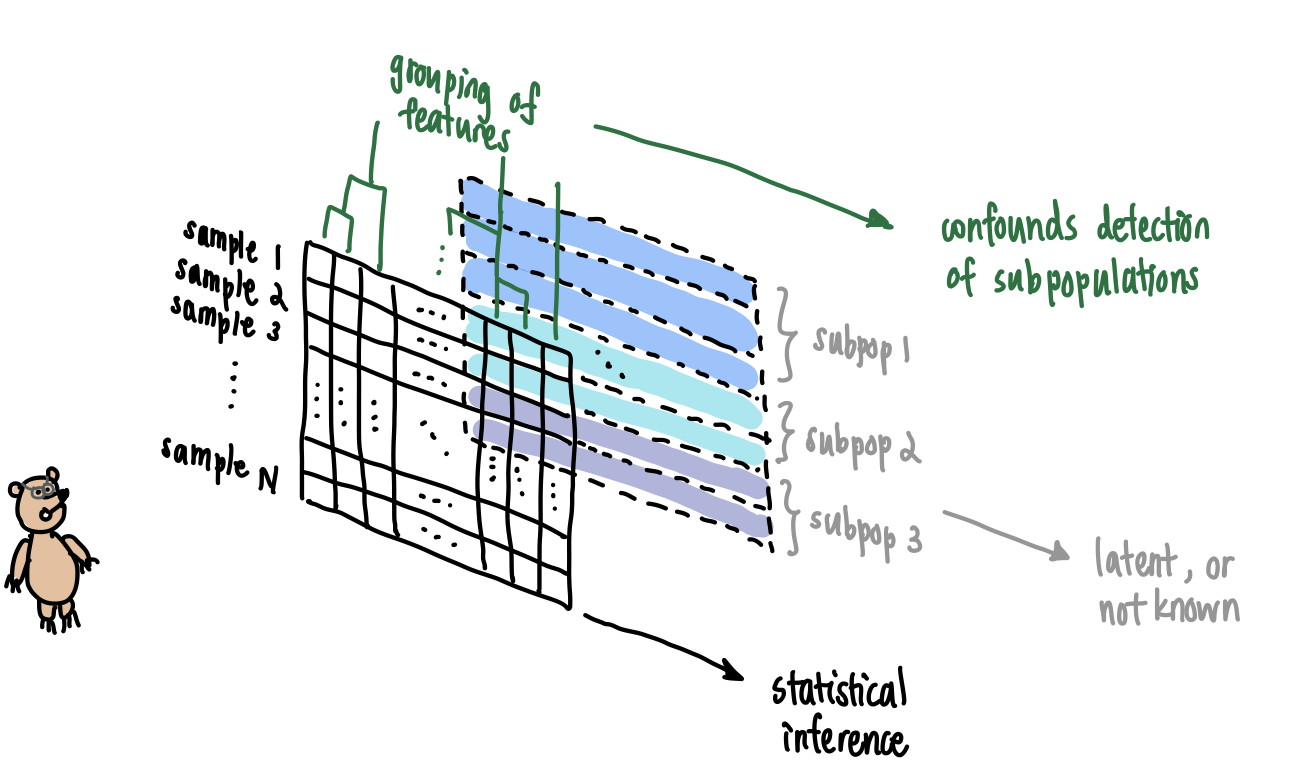 grouping of
features
confounds detection
of subpopulations
sample 1
sample 2
sample 3
sample N
subpop 1
subpop 2
subpop 3
latent, or
not known
statistical
inference